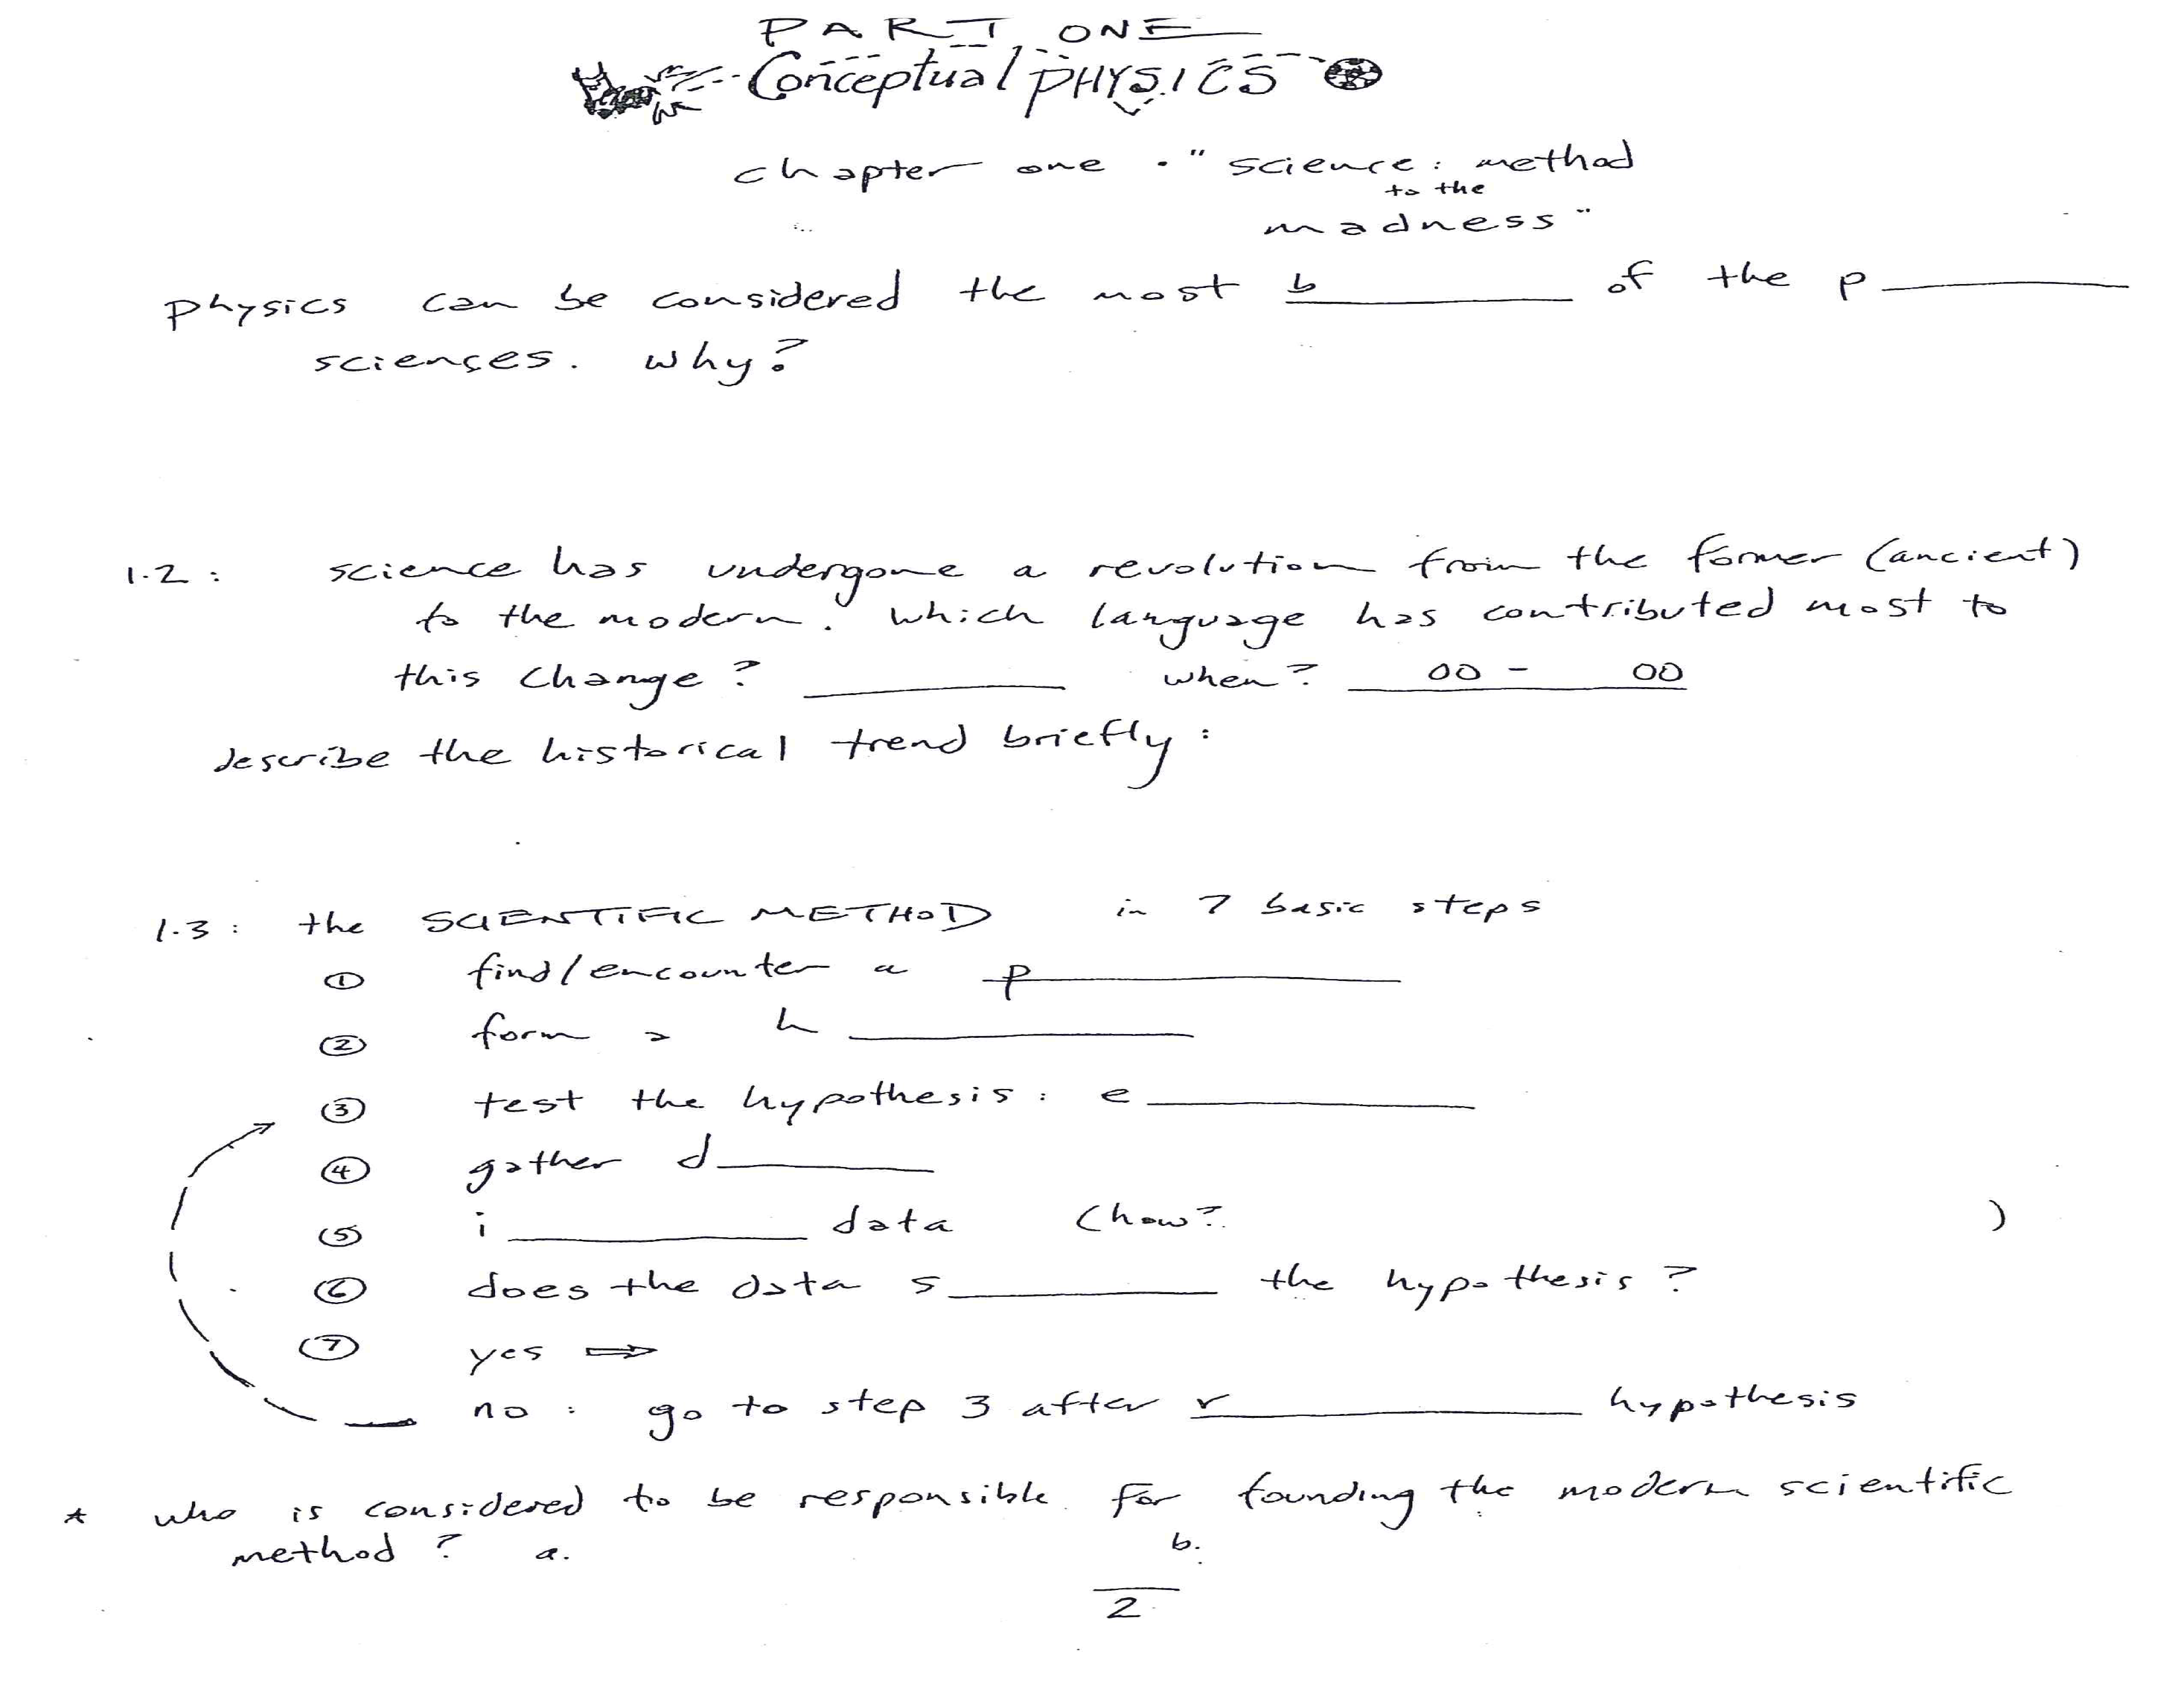 PART ONE
Conceptual PHYSICS
chapter one . "science: method
to the
madness"
physics can be considered the most b________ of the p________
sciences. why?
1.2: science has undergone a revolution from the former (ancient)
to the modern. which language has contributed most to
this change? ________ when? __00 - __00
describe the historical trend briefly:
1.3: the SCIENTIFIC METHOD in 7 basic steps
① find/encounter a p________
② form a h________
③ test the hypothesis: e________
④ gather d________
⑤ i________ data (how? )
⑥ does the data s________ the hypothesis?
⑦ yes ⇒
no: go to step 3 after r________ hypothesis
* who is considered to be responsible for founding the modern scientific
method? a. b.
2